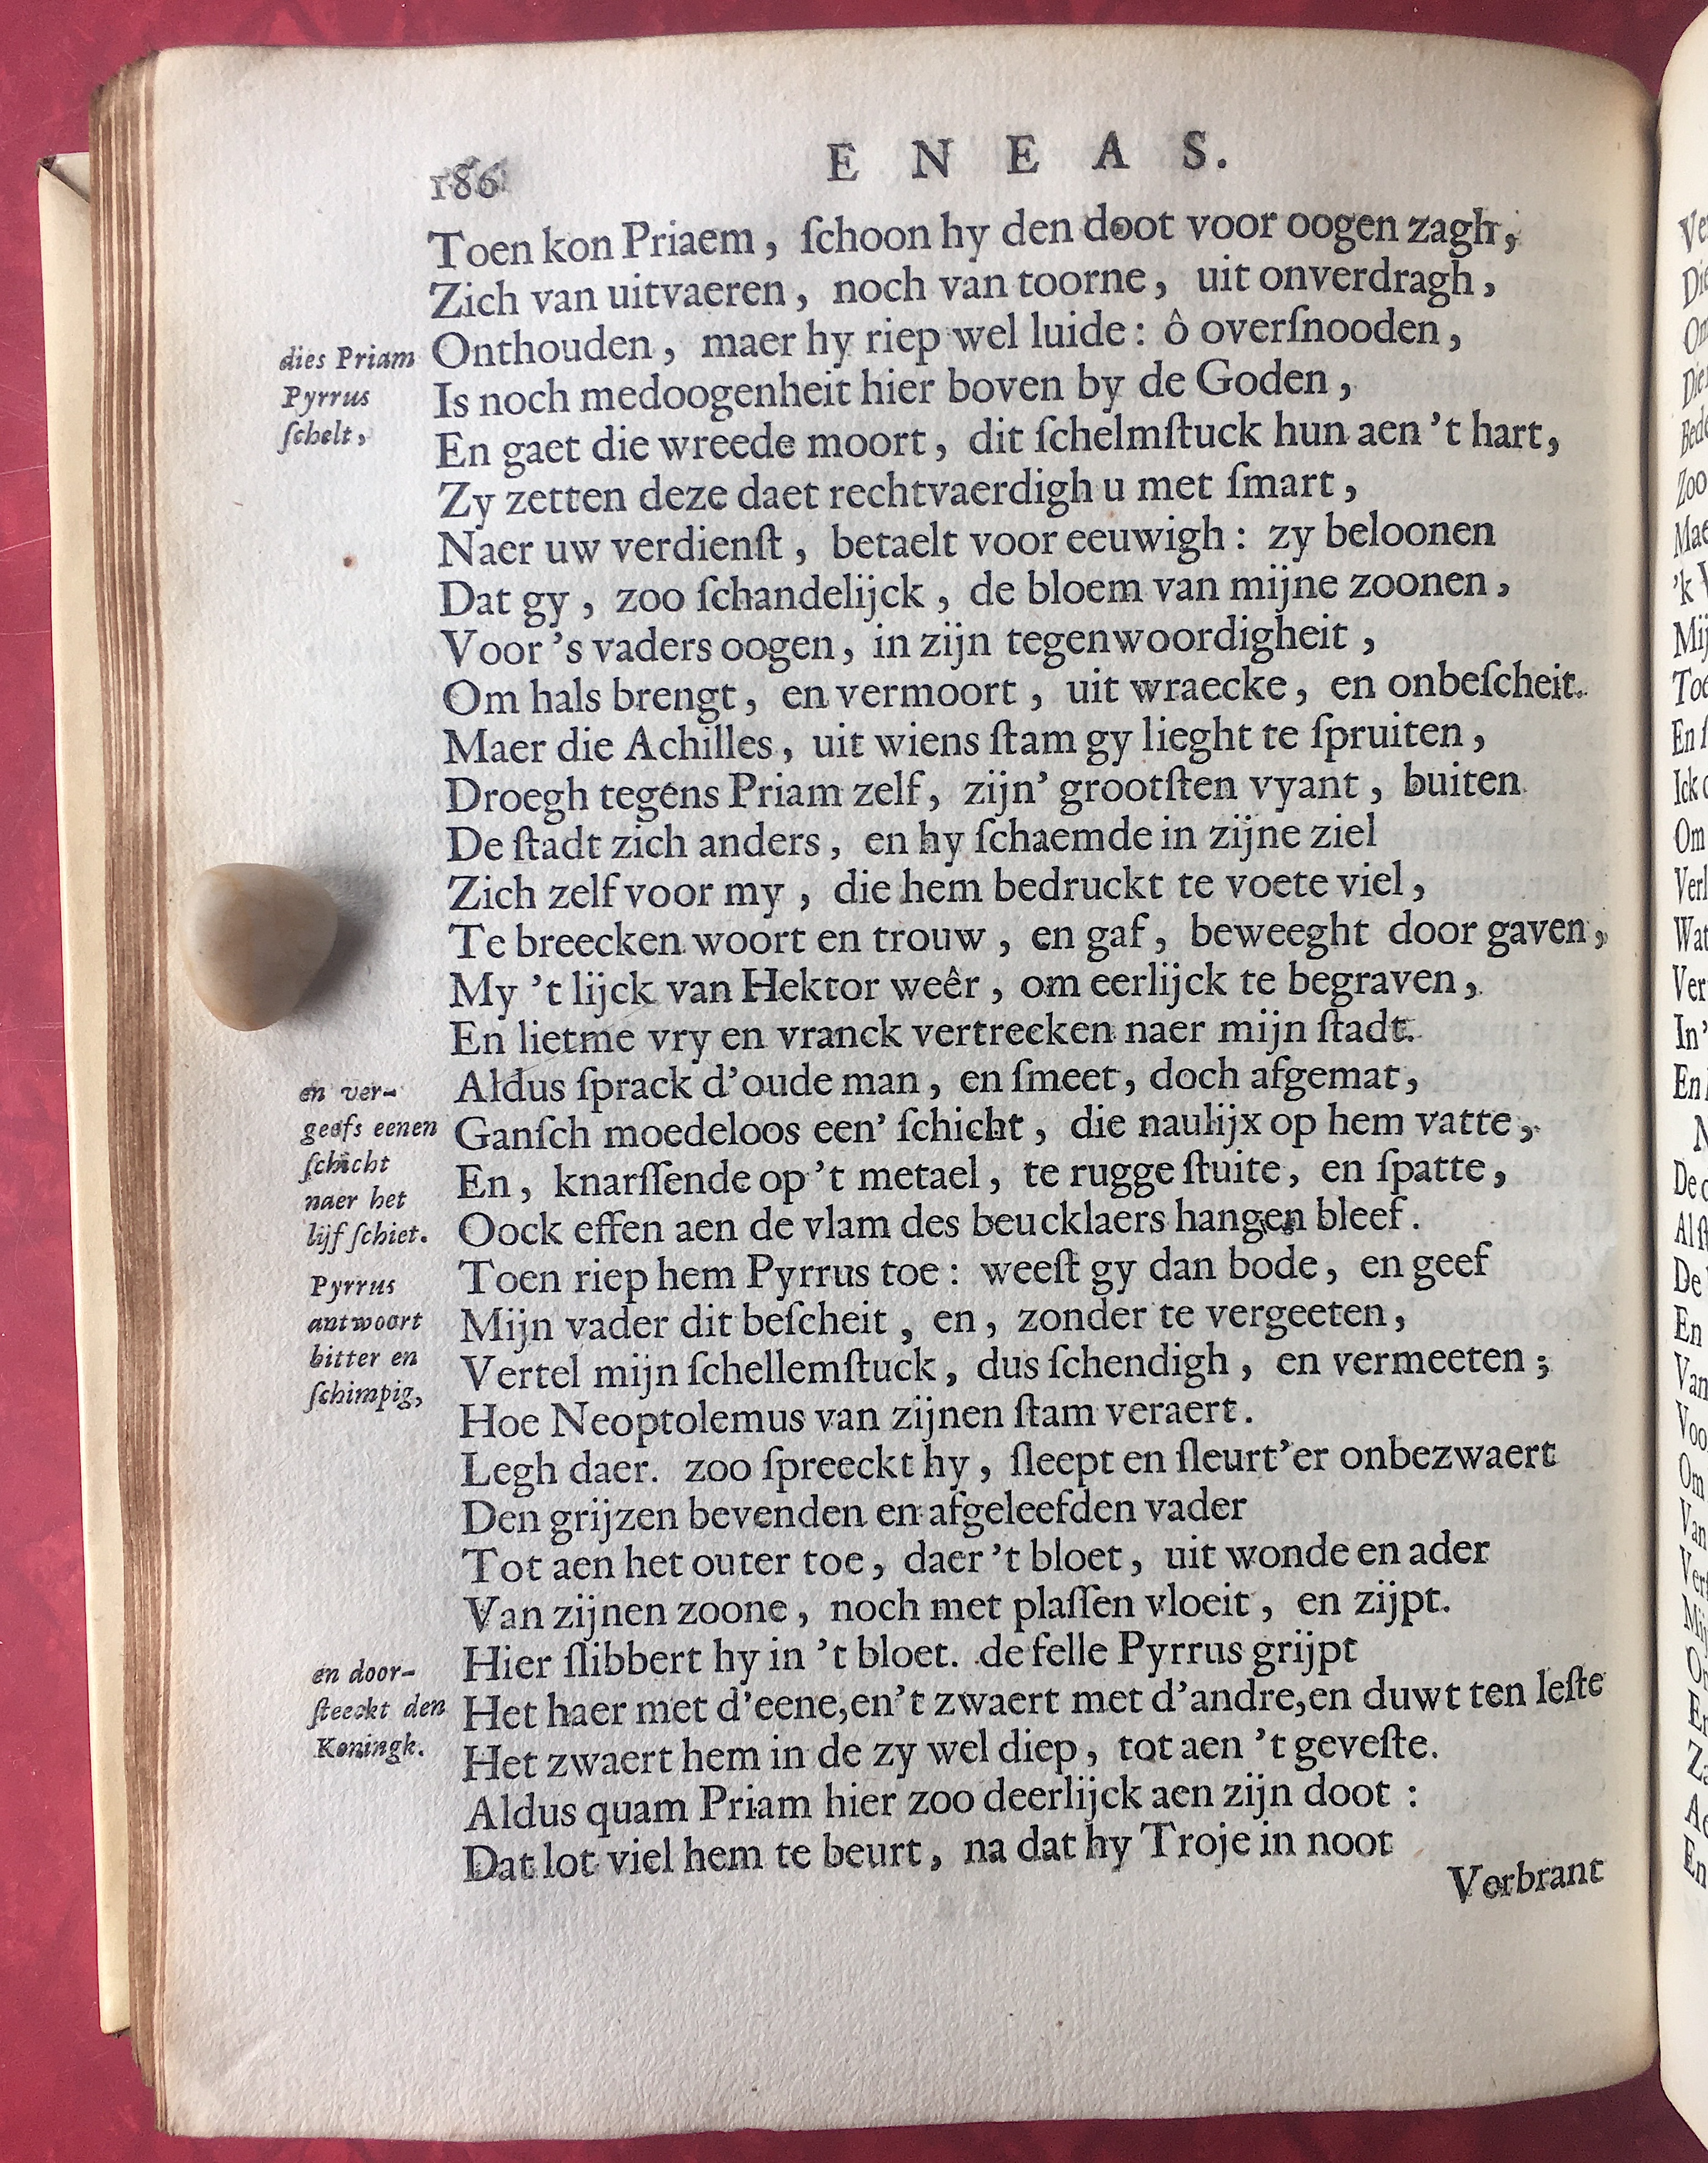 186
E N E A S.
Toen kon Priaem, ſchoon hy den doot voor oogen zagh,
Zich van uitvaeren, noch van toorne, uit onverdragh,
Onthouden, maer hy riep wel luide: ô overſnooden,
Is noch medoogenheit hier boven by de Goden,
En gaet die wreede moort, dit ſchelmſtuck hun aen 't hart,
Zy zetten deze daet rechtvaerdigh u met ſmart,
Naer uw verdienſt, betaelt voor eeuwigh: zy beloonen
Dat gy, zoo ſchandelijck, de bloem van mijne zoonen,
Voor 's vaders oogen, in zijn tegenwoordigheit,
Om hals brengt, en vermoort, uit wraecke, en onbeſcheit.
Maer die Achilles, uit wiens ſtam gy lieght te ſpruiten,
Droegh tegens Priam zelf, zijn' grootſten vyant, buiten
De ſtadt zich anders, en hy ſchaemde in zijne ziel
Zich zelf voor my, die hem bedruckt te voete viel,
Te breecken woort en trouw, en gaf, beweeght door gaven,
My 't lijck van Hektor weêr, om eerlijck te begraven,
En lietme vry en vranck vertrecken naer mijn ſtadt.
Aldus ſprack d'oude man, en ſmeet, doch afgemat,
Ganſch moedeloos een' ſchicht, die naulijx op hem vatte,
En, knarſſende op 't metael, te rugge ſtuite, en ſpatte,
Oock effen aen de vlam des beucklaers hangen bleef.
Toen riep hem Pyrrus toe: weeſt gy dan bode, en geef
Mijn vader dit beſcheit, en, zonder te vergeeten,
Vertel mijn ſchellemſtuck, dus ſchendigh, en vermeeten;
Hoe Neoptolemus van zijnen ſtam veraert.
Legh daer. zoo ſpreeckt hy, ſleept en ſleurt'er onbezwaert
Den grijzen bevenden en afgeleefden vader
Tot aen het outer toe, daer 't bloet, uit wonde en ader
Van zijnen zoone, noch met plaſſen vloeit, en zijpt.
Hier ſlibbert hy in 't bloet. de felle Pyrrus grijpt
Het haer met d'eene, en 't zwaert met d'andre, en duwt ten leſte
Het zwaert hem in de zy wel diep, tot aen 't geveſte.
Aldus quam Priam hier zoo deerlijck aen zijn doot:
Dat lot viel hem te beurt, na dat hy Troje in noot
Verbrant
dies Priam
Pyrrus
ſchelt,
en ver-
geefs eenen
ſchicht
naer het
lijf ſchiet.
Pyrrus
antwoort
bitter en
ſchimpig,
en door-
ſteeckt den
Koningk.